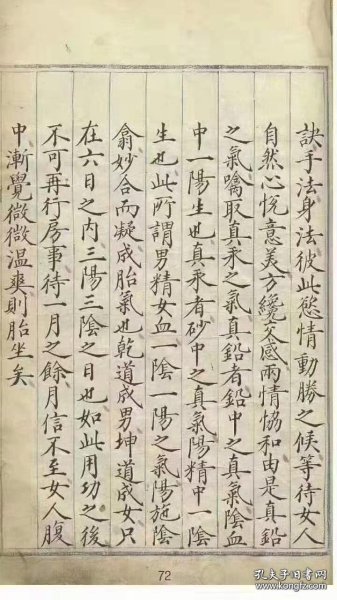 訣手法身法彼此慾情動勝之候等待女人
自然心悅意美方纔交感兩情恊和由是真鉛
之氣噏取真汞之氣真鉛者鉛中之真氣陰血
中一陽生也真汞者砂中之真氣陽精中一陰
生也此所謂男精女血一陰一陽之氣陽施陰
翕妙合而凝成胎氣也乾道成男坤道成女只
在六日之内三陽三陰之日也如此用功之後
不可再行房事待一月之餘月信不至女人腹
中漸覺微微溫爽則胎坐矣
72
孔夫子旧书网